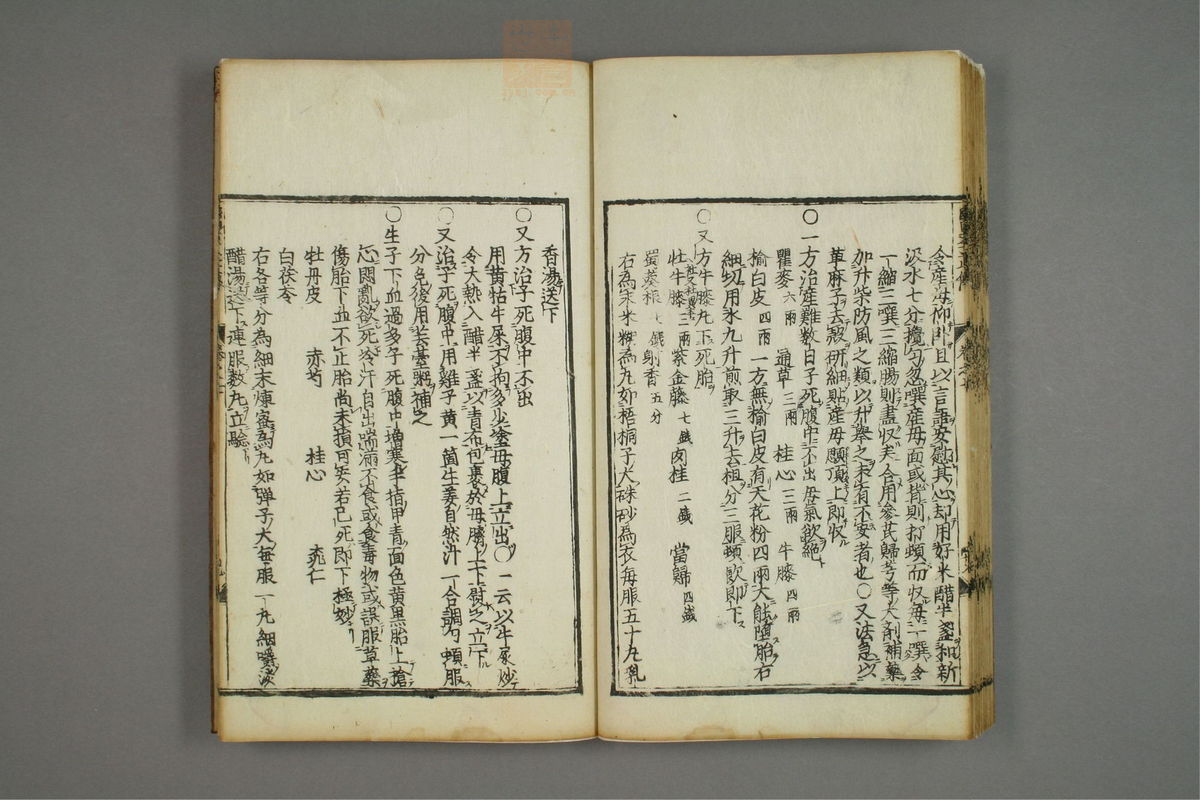 令産母仰臥且以言語安慰其心却用好米醋半盞和新
汲水七分攪勻忽噀産母面或背則打頓而収毎一噀令
一縮三噀三縮腸則盡収矣合用參芪歸芎等大剤補藥
加升柴防風之類以升舉之未有不安者也○又法急以
萆麻子去殻研細貼産母頭頂上即収
○一方治産難數日子死腹中不出母氣欲絶
瞿麥六兩 通草三兩 桂心三兩 牛膝四兩
榆白皮四兩 一方無榆白皮有天花粉四兩大能墮胎右
細切用水九升煎取三升去柤分三服頓飲即下
○又方牛膝丸下死胎
牡牛膝三兩紫金藤七錢肉桂二錢 當歸四錢
蜀葵根七錢射香五分
右為末米糊為丸如梧桐子大硃砂為衣毎服五十丸乳
香湯送下
○又方治子死腹中不出
用黄牯牛屎不拘多少塗母腹上立出○一云以牛屎炒
令大熱入醋半盞以青布包裹於母臍上下熨之立下
○又治子死腹中用雞子黄一箇生姜自然汁一合調勻頓服
分免後用芸薹粥補之
○生子下血過多子死腹中増寒手指甲青面色黄黒胎上搶
心悶亂欲死冷汗自出喘滿不食或食毒物或誤服草藥
傷胎下血不止胎尚未損可安若已死即下極妙
牡丹皮 赤芍 桂心 桃仁
白茯苓
右各等分為細末煉蜜為丸如弾子大毎服一丸細嚼淡
醋湯送下連服數丸立驗